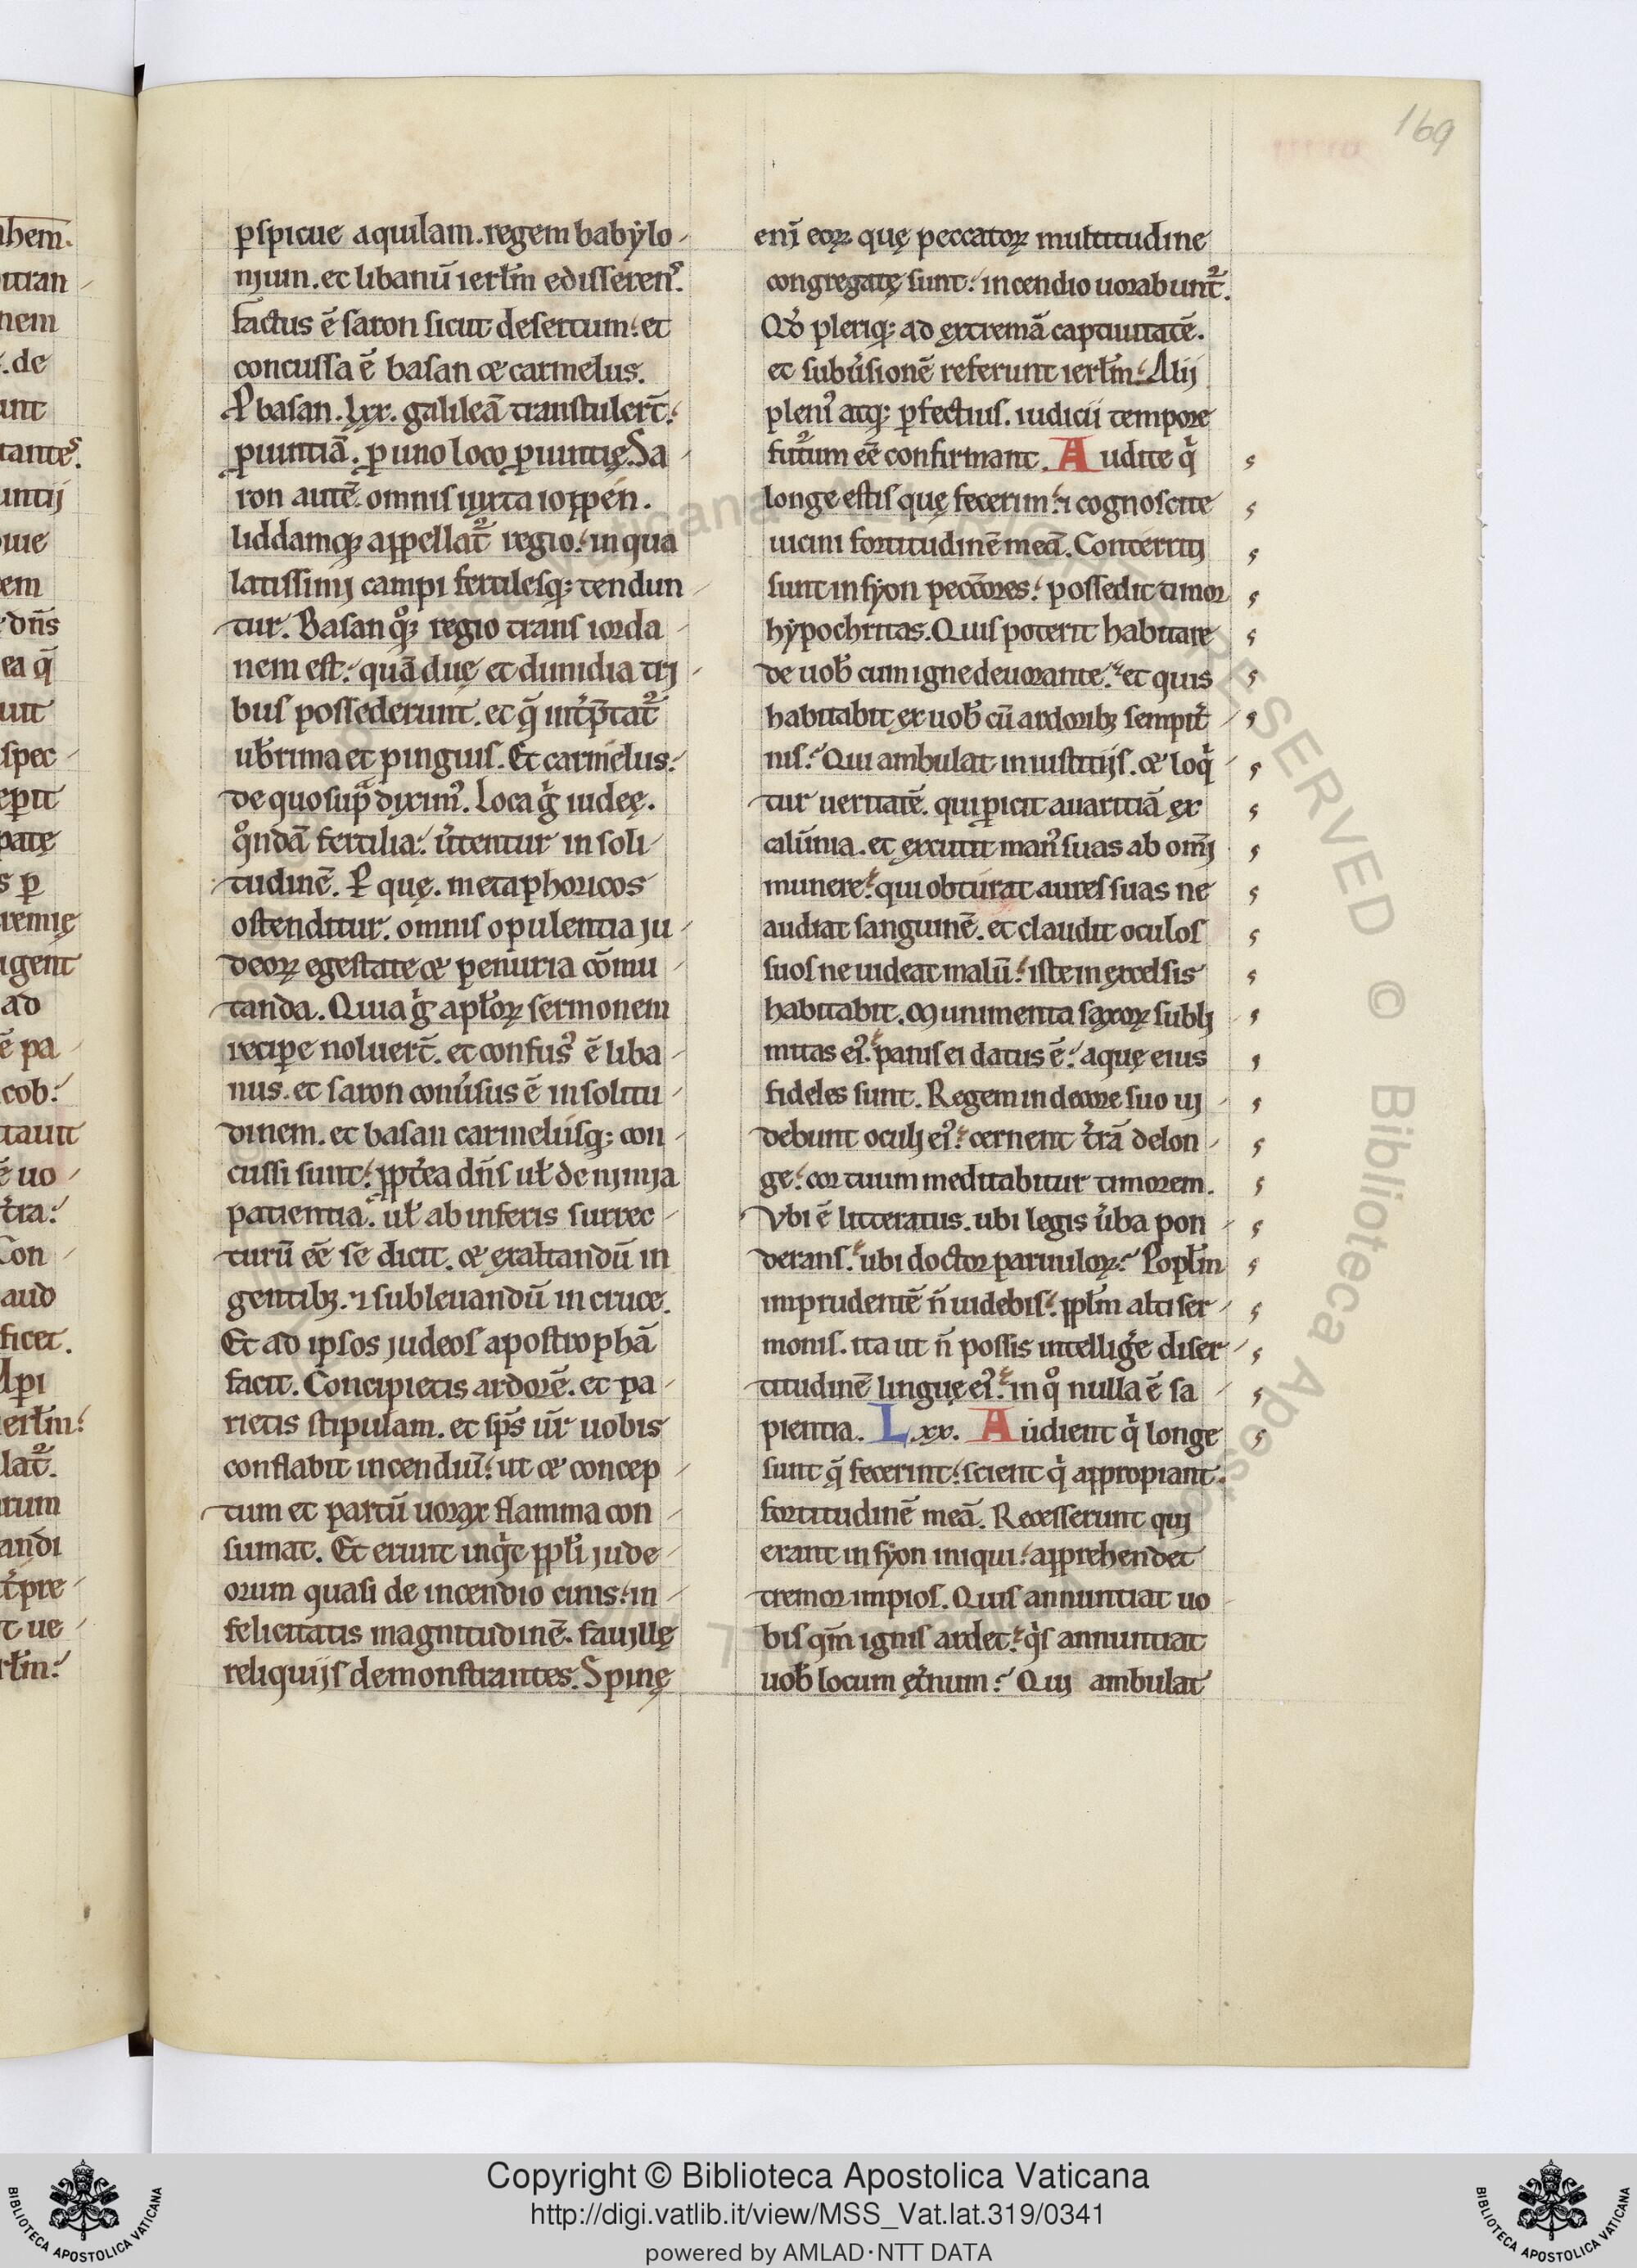 169
ꝑspicue aquilam. regem babẏlo-
nium. et libanū ierłm edisserens.
factus ē saron sicut desertum: et
concussa ē basan et carmelus.
P basan. lxx. galileā transtulert̄:
ꝓuintiā. ꝓ uno loco ꝓuintię. Sa-
ron autē omnis iuxta ioppen.
liddamqꝫ appellat᷑ regio: in qua
latissimi campi fertilesqꝫ tendun-
tur. Basan qͦꝫ regio trans iorda-
nem est: quā duę et dimidia tri-
bus possederunt. et q̄ int̓p̄tat᷑
ub̓rima et pinguis. Et carmelus:
de quo sup̄ᵃ diximꝰ. Loca gͥ iudeę.
qͦndā fertilia: ůtentur in soli-
tudinē. P quę. metaphoricos
ostenditur. omnis opulentia ju-
deoꝝ egestate et penuria cōmu-
tanda. Quia gͥ apłoꝝ sermonem
recipe noluert̄. et confusꝰ ē liba-
nus. et saron conůsus ē in solitu-
dinem. et basan carmelusqꝫ con-
cussi sunt: ꝓpt̓ea dn̄s uł de nimia
patientia. uł ab inferis surrec-
turū eē se dicit. et exaltandū in
gentibꝫ. ⁊ subleuandū in cruce.
Et ad ipsos judeos apostrophā
facit. Concipietis ardorē. et pa-
rietis stipulam. et sp̄s ūr uobis
conflabit incendiū: ut et concep-
tum et partū uorax flamma con-
sumat. Et erunt inqͥt ppłi jude-
orum quasi de incendio cinis: in-
felicitatis magnitudinē. fauillę
reliquijs demonstrantes. Spinę
enī eoꝝ quę peccatoꝝ multitudine
congregatę sunt: incendio uorabunt᷑.
Qď pleriqꝫ ad extremā captiuitatē.
et subůsionē referunt ierłm: Alij
plenꝰ atqꝫ ꝑfectius. iudicii tempore
fut᷑um eē confirmant. Audite qͥ
longe estis quę fecerim: ⁊ cognoscite
uicini fortitudinē meā. Conterriti
sunt in syon pecc̄ores: possedit timor
hẏpochritas. Quis poterit habitare
de uob̓ cum igne deuorante: et quis
habitabit ex uob̓ cū ardoribꝫ sempit̓-
nis: Qui ambulat in iustitijs. et loqͥ-
tur ueritatē. qui ꝓicit auaritiā ex
calūnia. et excutit manꝰ suas ab omī
munere: qui obturat aures suas ne
audiat sanguinē. et claudit oculos
suos ne uideat malū: iste in excelsis
habitabit. Munimenta saxoꝝ subli-
mitas eiꝰ: panis ei datus ē: aquę eius
fideles sunt. Regem in decore suo ui-
debunt oculi eiꝰ: cernent t̓rā de lon-
ge: cor tuum meditabitur timorem.
Vbi ē litteratus. ubi legis ůba pon-
derans: ubi doctor paruuloꝝ: Popłm
imprudentē n̄ uidebis: ppłm alti ser-
monis. ita ut n̄ possis intellig̓e diser-
titudinē linguę eiꝰ: in qͦ nulla ē sa-
pientia. L.xx. Audient qͥ longe
sunt q̄ fecerint: scient qͥ appropiant:
fortitudinē meā. Recesserunt qui
erant in syon iniqui: apprehendet
tremor impios. Quis annuntiat uo-
bis qm̄ ignis ardet: qͥs annuntiat
uob̓ locum ęt̓num: Qui ambulat
Copyright © Biblioteca Apostolica Vaticana
http://digi.vatlib.it/view/MSS_Vat.lat.319/0341
powered by AMLAD·NTT DATA